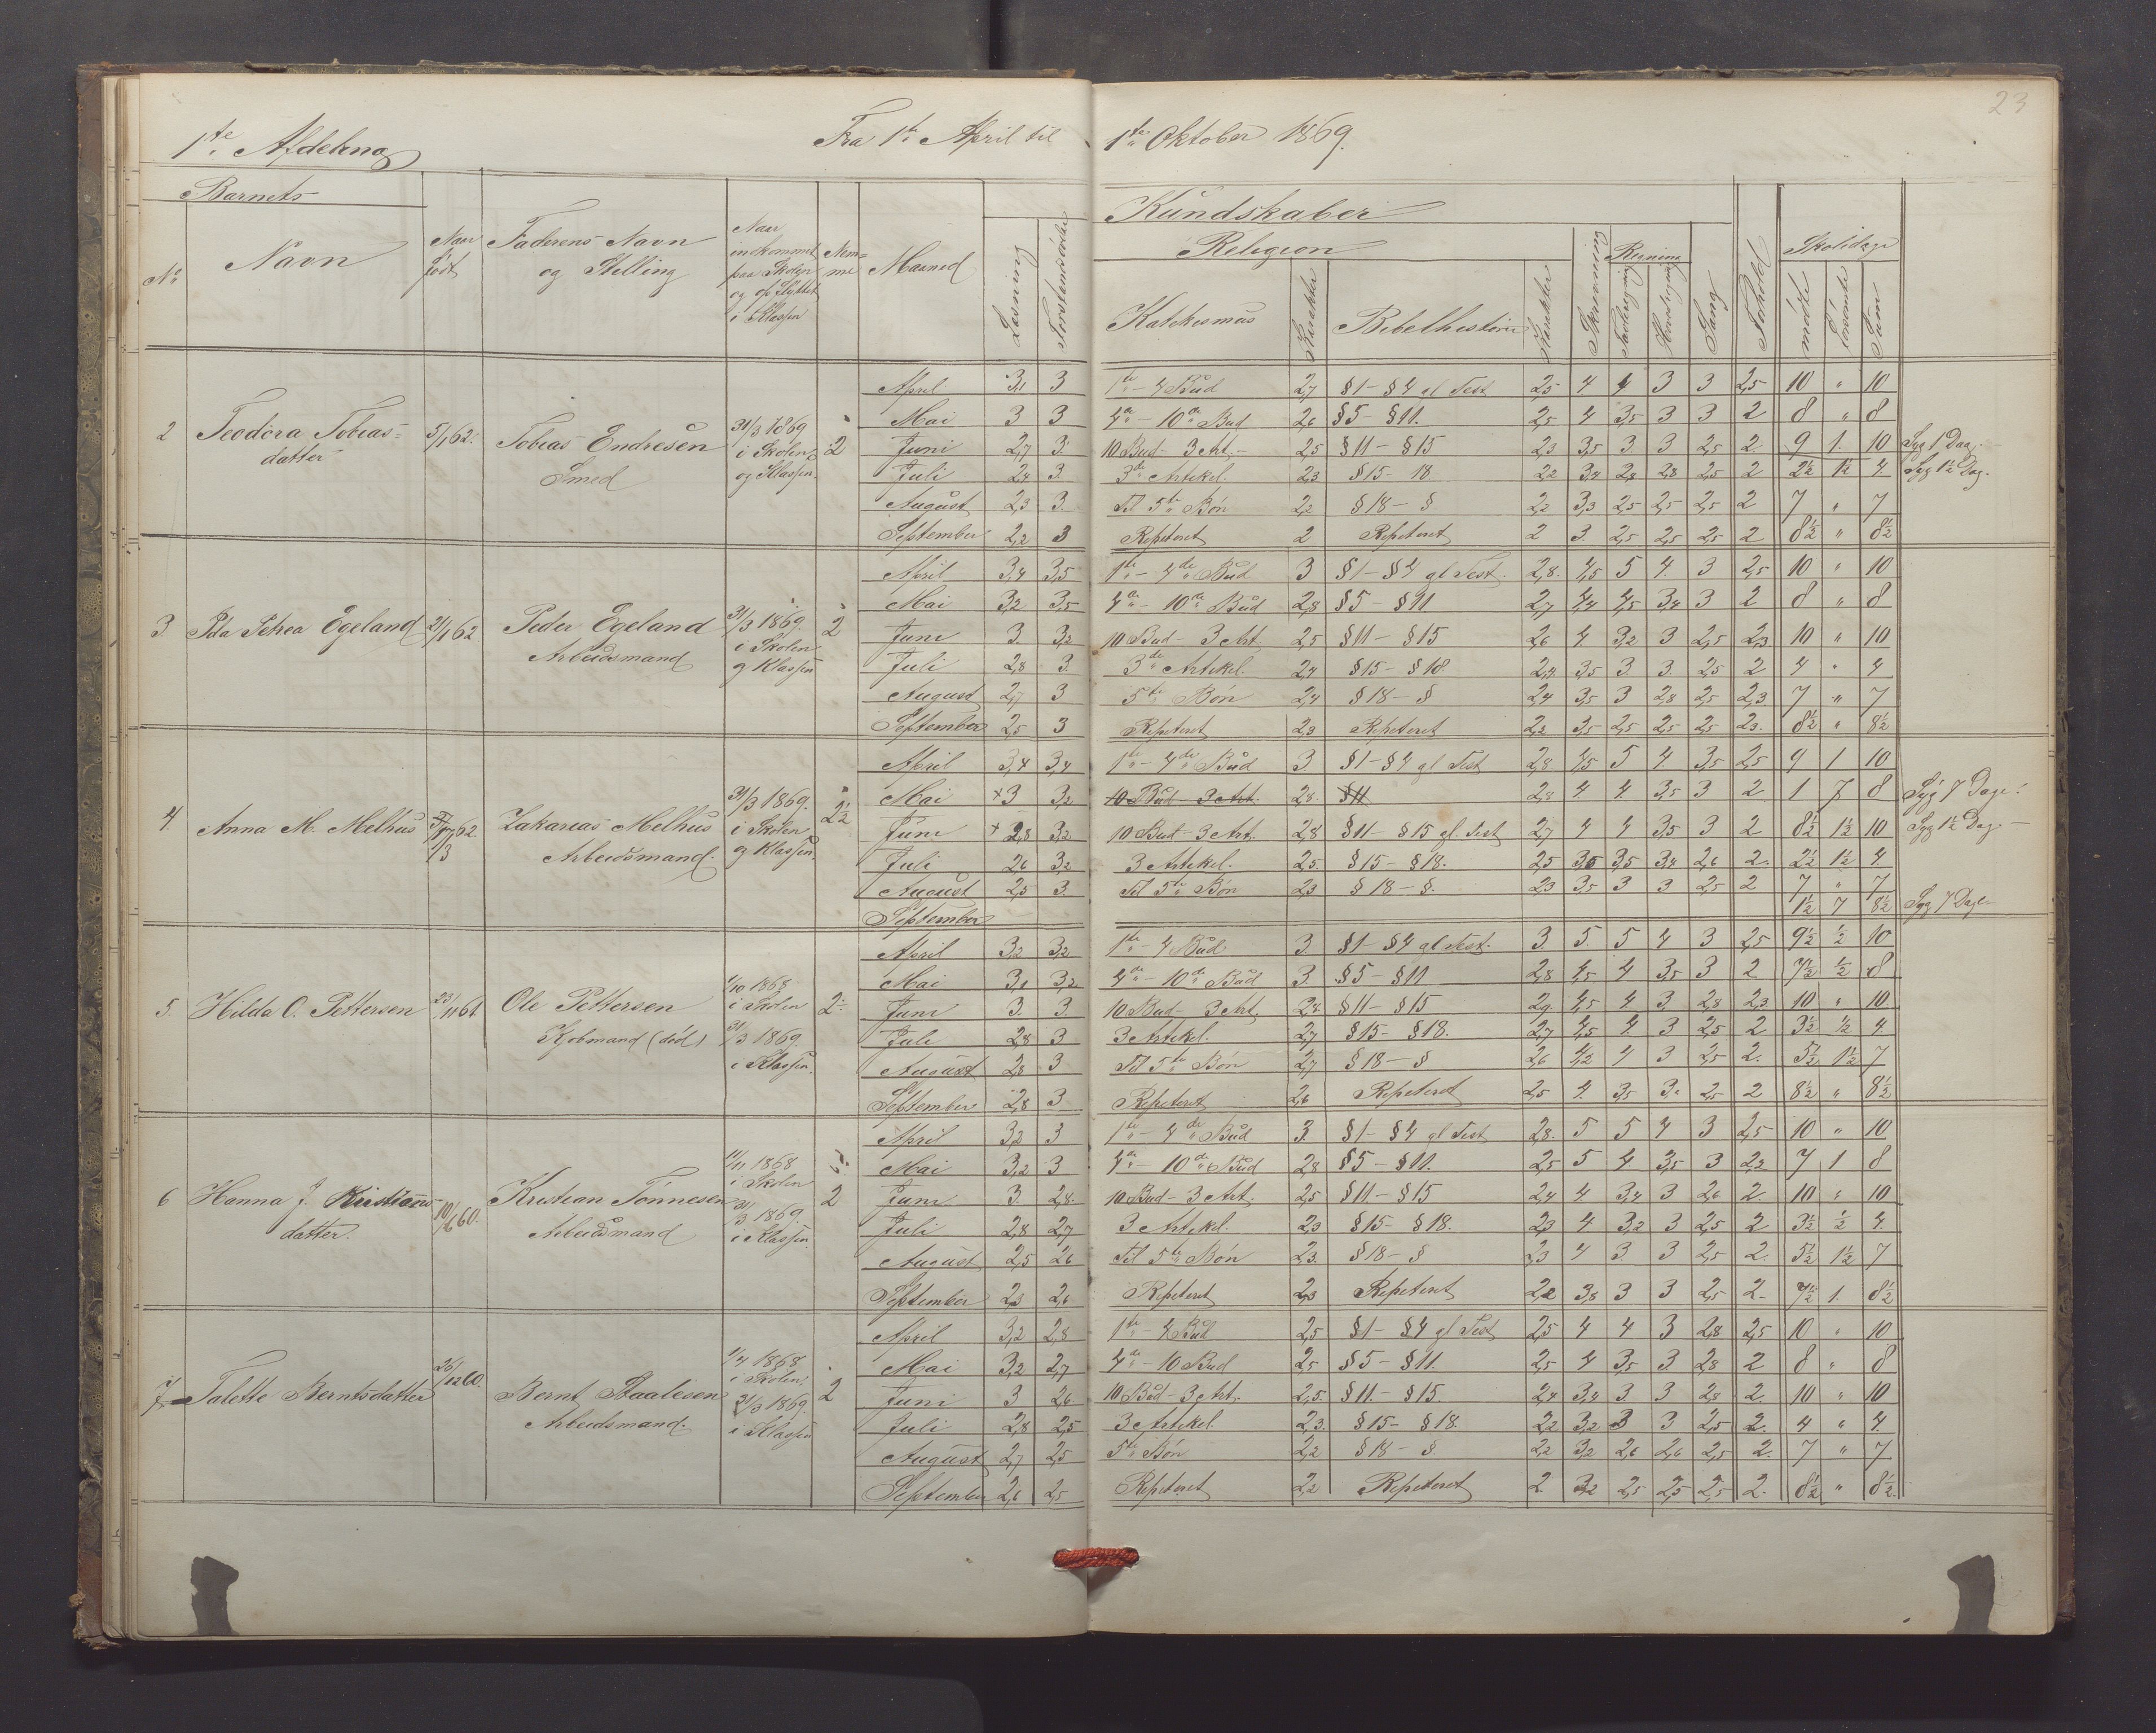 23
1te Afdeling Fra 1te April til 1te Oktober 1869.
Barnets Kundskaber
No Navn Naar født Faderens Navn og Stilling Naar indkommet paa Skolen og opflyttet i Klassen Nemme Maaned Læsning Forstandsøvelse Religion Skrivning Regning Sang Forhold Skoledage
Katekismus Karakter Bibelhistorie Karakter Tavleregning Hovedregning mødte forsømte Sum
2 Teodora Tobiasdatter 5/1 62. Tobias Endresen Smed 31/3 1869 i Skolen og Klassen. 2
April 3,1 3 1te - 4 Bud 2,7 § 1 - § 4 gl Test 2,5 4 4 3 3 2,5 10 " 10
Mai 3 3 4de - 10de Bud 2,6 § 5 - § 11. 2,5 4 3,5 3 3 2 8 " 8
Juni 2,7 3. 10 Bud - 3 Art. 2,5 § 11 - § 15 2,3 3,5 3 3 2,5 2. 9 1. 10 Syg 1 Dag.
Juli 2,4 3. 3de Artikel. 2,3 § 15 - 18. 2,2 3,4 2,8 2,8 2,5 2 2½ 1½ 4 Syg 1½ Dag.
August 2,3 3. Til 5te Bøn 2,2 § 18 - § 2,2 3,3 2,5 2,5 2,5 2 7 " 7
September 2,2 3 Repeteret 2 Repeteret 2 3. 2,5 2,5 2,5 2 8½ " 8½
3. Ida Petrea Egeland 21/1 62 Peder Egeland Arbeidsmand 31/3 1869. i Skolen og Klassen 2
April 3,4 3,5 1te - 4de Bud 3 § 1 - § 4 gl Test. 2,8. 4,5 5 4. 3 2,5 10 " 10
Mai 3,2 3,5 4de - 10de Bud 2,8 § 5 - § 11 2,7 4,4 4,5 3,4 3 2 8 " 8
Juni 3. 3,2 10 Bud - 3 Art. 2,5 § 11 - § 15 2,6 4. 3,2 3 2,5 2,3 10 " 10
Juli 2,8 3. 3de Artikel. 2,4 § 15 - § 18. 2,4. 3,5 3. 3. 2,5 2 4 " 4
August 2,7 3 5te Bøn 2,4 § 18 - § 2,4 3,5 3 2,8 2,5 2,3. 7 " 7
September 2,5 3 Repeteret 2,3 Repeteret 2,2 3,5 2,5 2,5 2,5 2,3. 8½ " 8½
4. Anna M. Melhus 62. Zakarias Melhus Arbeidsmand. 31/3 1869. i Skolen og Klassen. 2½
April 3,4 3,4 1te - 4de Bud 3. § 1 - § 4 gl Test 2,8 4,5 5 4. 3,5 2,5 9 1 10
Mai +3 3,2 10 Bud - 3 Art. 2,8. § 11 2,8 4. 4. 3,5 3 2. 1 7 8 Syg 7 Dage.
Juni + 2,8 3,2 10 Bud - 3 Art. 2,8 § 11 - § 15 gl. Test 2,7 4 4 3,5 3 2 8½ 1½ 10 Syg 1½ Dag. -
Juli 2,6 3,2 3 Artikel. 2,5. § 15 - § 18. 2,5 3,5 3,5 3,4 2,6 2. 2½ 1½ 4.
August 2,5 3. Til 5te Bøn 2,3 § 18 - §. 2,3 3,5 3 3 2,5 2 7 " 7
September 1½ 7 8½ Syg 7 Dage
5. Hilda O. Pettersen 23/11 61 Ole Pettersen Kjøbmand (død) 1/10 1868 i Skolen 31/3 1869. i Klassen. 2
April 3,2 3,2 1te - 4 Bud 3. § 1 - § 4 gl Test. 3. 5. 5 4 3 2,5 9½ ½ 10
Mai 3,1 3,2 4de - 10de Bud 3. § 5 - § 11 2,8 4,5 4 3,5 3 2 7½ ½ 8
Juni 3. 3. 10 Bud - 3 Art. 2,8. § 11 - § 15 2,9. 4,5 4 3. 2,8 2,3 10 " 10.
Juli 2,8 3 3 Artikel. 2,7 § 15 - § 18. 2,7 4,5 4. 3 2,5 2 3½ ½ 4.
August 2,8 3 Til 5te Bøn 2,7 § 18 - § 2,6 4,2 4 3 2,5 2. 5½ 1½ 7
September 2,8 3 Repeteret 2,6 Repeteret 2,5 4. 3,5 3. 2,5 2 8½ " 8½
6 Hanna J. Kristiansdatter. 10/6 60. Kristian Tønnesen Arbeidsmand 11/11 1868 i Skolen 31/3 1869. i Klassen. 2
April 3,2 3 1te - 4de Bud 3. § 1 - § 4 gl Test 2,8. 5 5 4 3 2,5 10 " 10
Mai 3,2 3 4de - 10de Bud 2,8 § 5 - § 11. 2,5 5 4 3,5 3 2,2 7 1 8
Juni 3. 2,8. 10 Bud - 3 Art. 2,5 § 11 - § 15 2,4 4 3,4 3 2,6 2. 10 " 10
Juli 2,8 2,7 3 Artikel. 2,3 § 15 - § 18. 2,3 4 3,2 3 2,5 2 3½ ½ 4.
August 2,5 2,6 Til 5te Bøn 2,3. § 18 - § 2,3 4 3. 3 2,5 2. 5½ 1½ 7
September 2,3 2,6 Repeteret 2,3 Repeteret 2,2 3,8 3 3 2,5 2. 7½ 1. 8½
7 Talette Berntsdatter 26/12 60. Bernt Staalesen Arbeidsmand. 1/4 1868 i Skolen 31/3 1869. i Klassen 2
April 3,2 2,8 1te - 4 Bud 2,5 § 1 - § 4 gl Test 2,5 4 4 3 2,8 2,5 10 " 10
Mai 3,2 2,7 4de - 10 Bud 2,5 § 5 - § 11. 2,5 4 3,5 3. 2,8 2 8 " 8
Juni 3 2,6 10 Bud - 3 Art. 2,5. § 11. - § 15. 2,4 3,4 3 3 2,8 2. 10 " 10
Juli 2,8 2,5 3 Artikel 2,3. § 15 - § 18. 2,2 3,2 3 3 2,5 2. 4 " 4.
August 2,7 2,5 5te Bøn 2,2 § 18 - §. 2,2 3,2 2,6 2,6 2,5 2. 7 " 7
September 2,6 2,5 Repeteret 2,2 Repeteret 2. 3,2 2,5 2,5 2,5 2. 8½ " 8½.